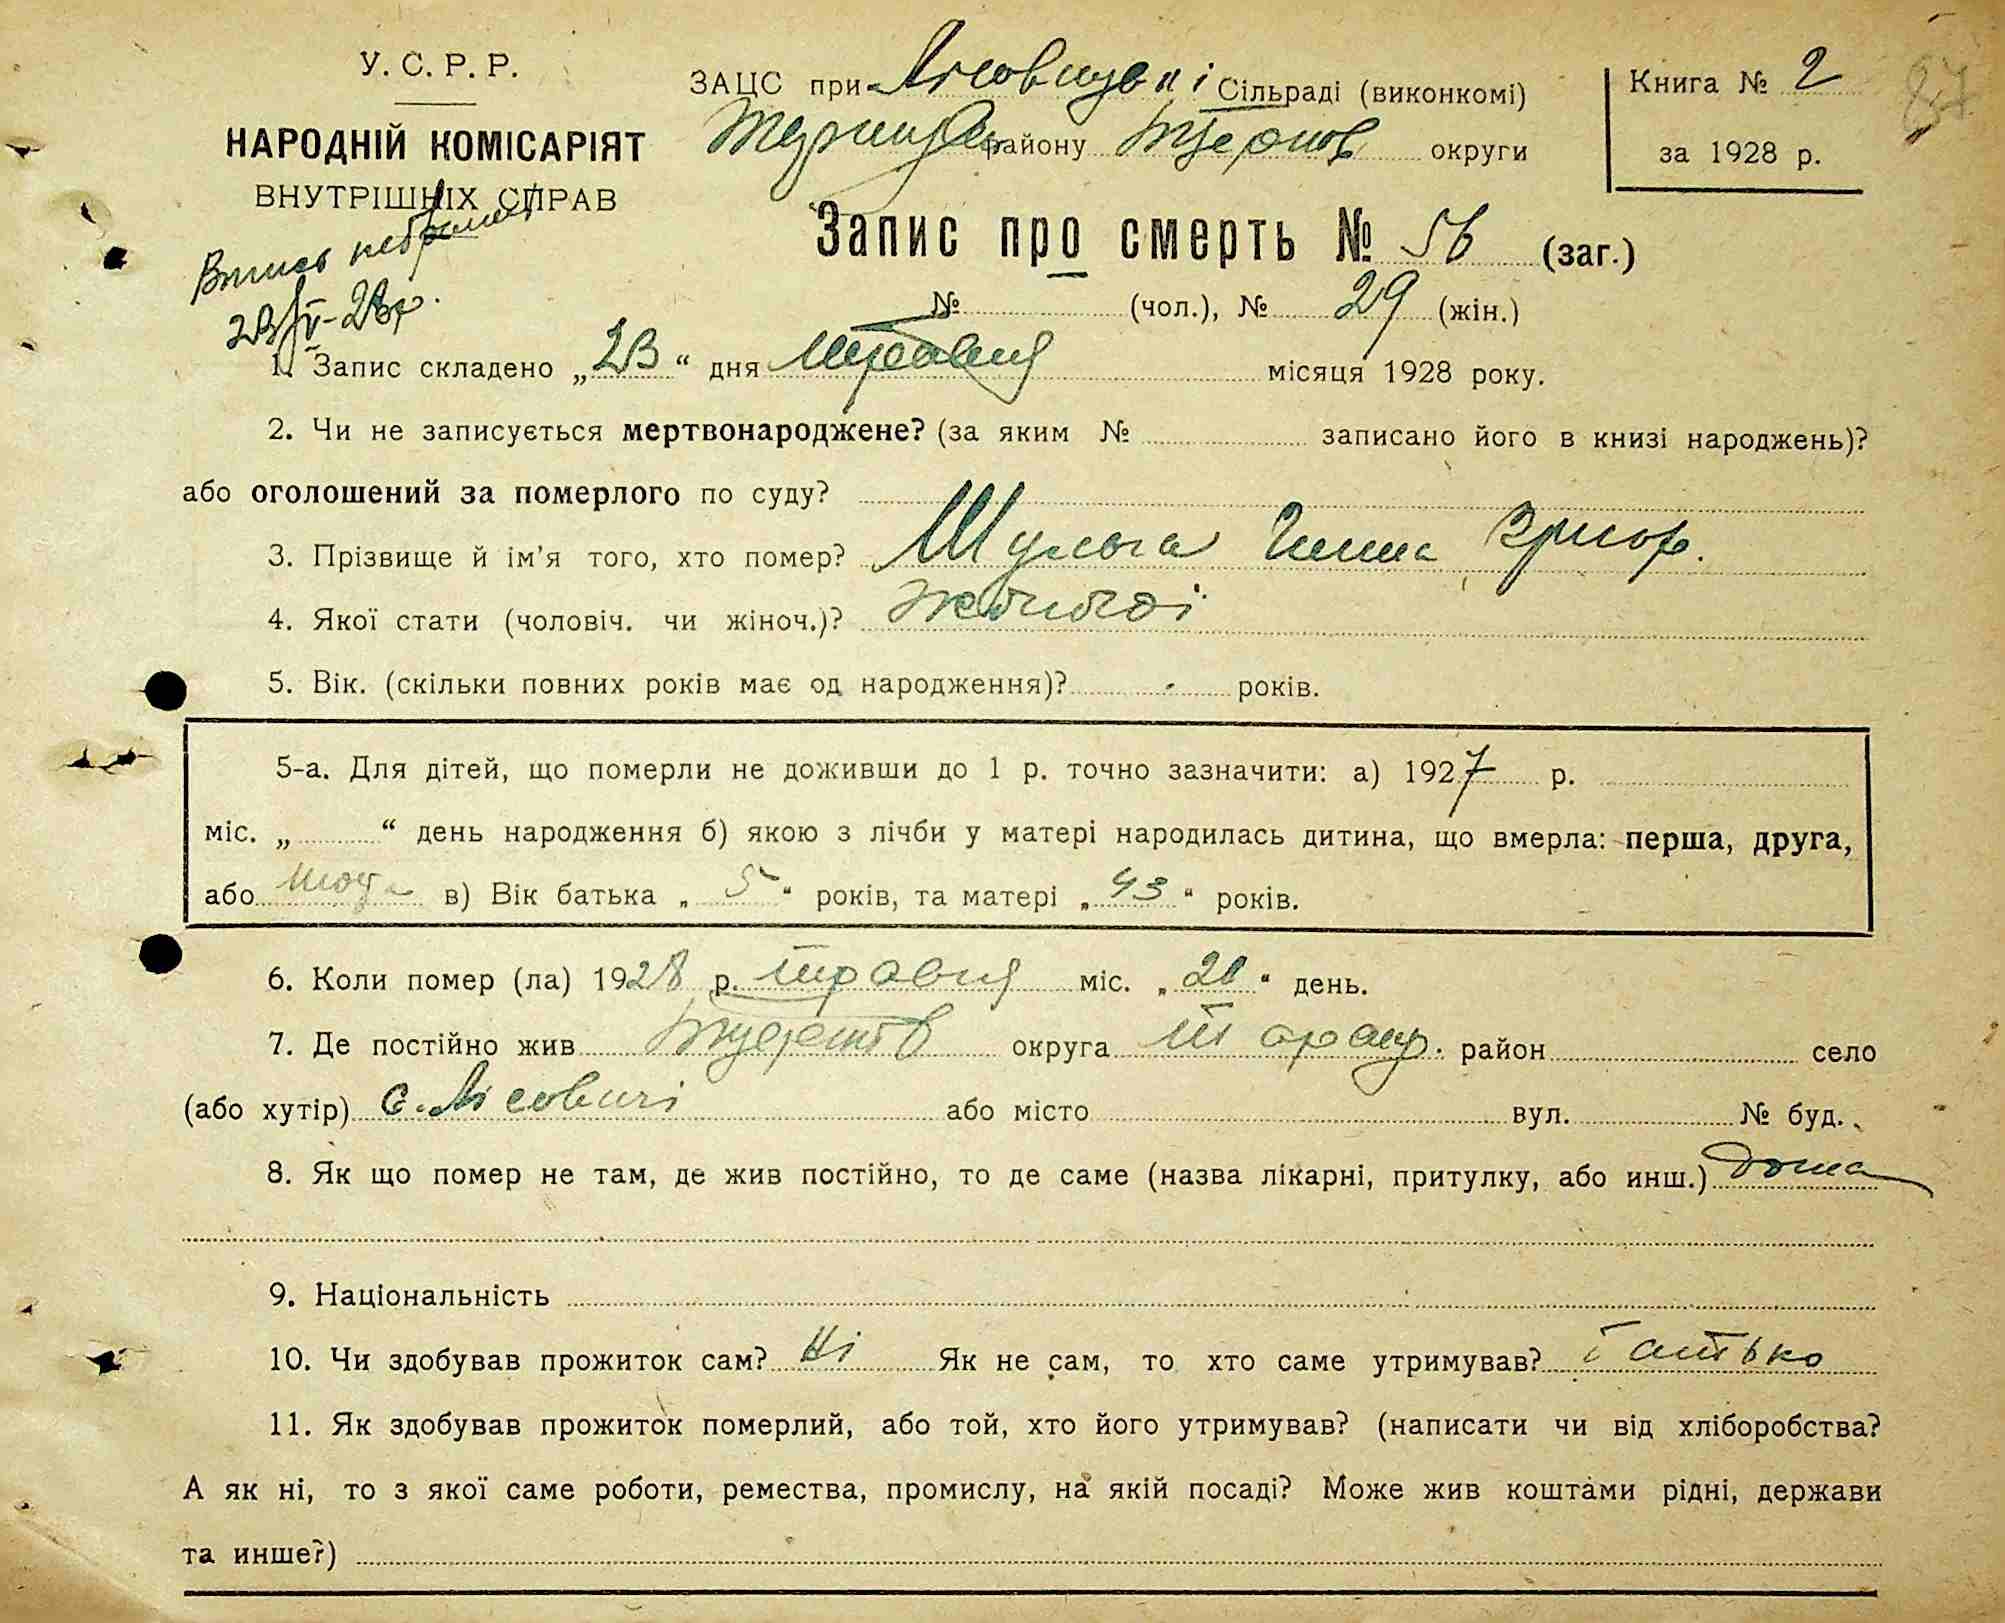 У. С. Р. Р.
НАРОДНІЙ КОМІСАРІЯТ
ВНУТРІШНІХ СПРАВ
ЗАЦС при Сільраді (виконкомі)
району округи
Книга № 2
за 1928 р.
Запис про смерть № 56 (заг.)
№ (чол.), № 29 (жін.)
1. Запис складено „23“ дня травня місяця 1928 року.
2. Чи не записується мертвонароджене? (за яким № записано його в книзі народжень)?
або оголошений за померлого по суду?
3. Прізвище й ім'я того, хто помер? Шульга Ганна Григор.
4. Якої стати (чоловіч. чи жіноч.)? жіночої
5. Вік. (скільки повних років має од народження)? років.
5-а. Для дітей, що померли не доживши до 1 р. точно зазначити: а) 1927 р.
міс. „ “ день народження б) якою з лічби у матері народилась дитина, що вмерла: перша, друга,
або в) Вік батька „ “ років, та матері „43“ років.
6. Коли помер (ла) 1928 р. травня міс. „ “ день.
7. Де постійно жив округа район село
(або хутір) с. Лісовичі або місто вул. № буд.
8. Як що помер не там, де жив постійно, то де саме (назва лікарні, притулку, або инш.) дома
9. Національність
10. Чи здобував прожиток сам? Ні Як не сам, то хто саме утримував? батько
11. Як здобував прожиток померлий, або той, хто його утримував? (написати чи від хліборобства?
А як ні, то з якої саме роботи, ремества, промислу, на якій посаді? Може жив коштами рідні, держави
та инше?)